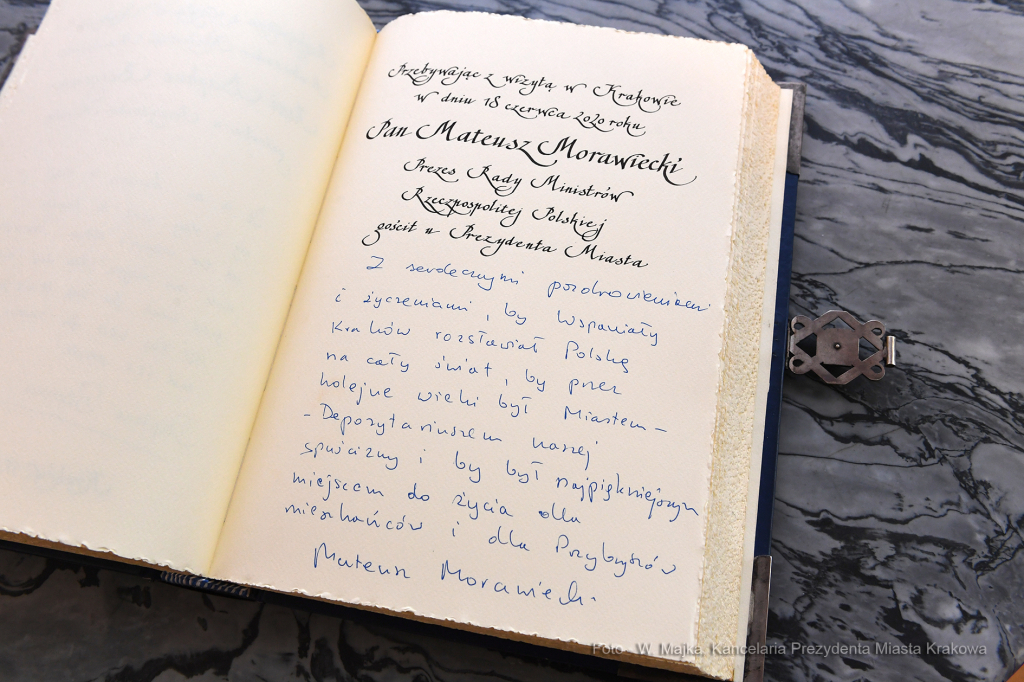 Przebywając z wizytą w Krakowie
w dniu 18 czerwca 2020 roku
Pan Mateusz Morawiecki
Prezes Rady Ministrów
Rzeczpospolitej Polskiej
gościł u Prezydenta Miasta
Z serdecznymi pozdrowieniami
i życzeniami, by Wspaniały
Kraków rozsławiał Polskę
na cały świat, by przez
kolejne wieki był Miastem –
– Depozytariuszem naszej
spuścizny i by był najpiękniejszym
miejscem do życia dla
mieszkańców i dla Przybyszów
Mateusz Morawiecki
Foto - W. Majka, Kancelaria Prezydenta Miasta Krakowa